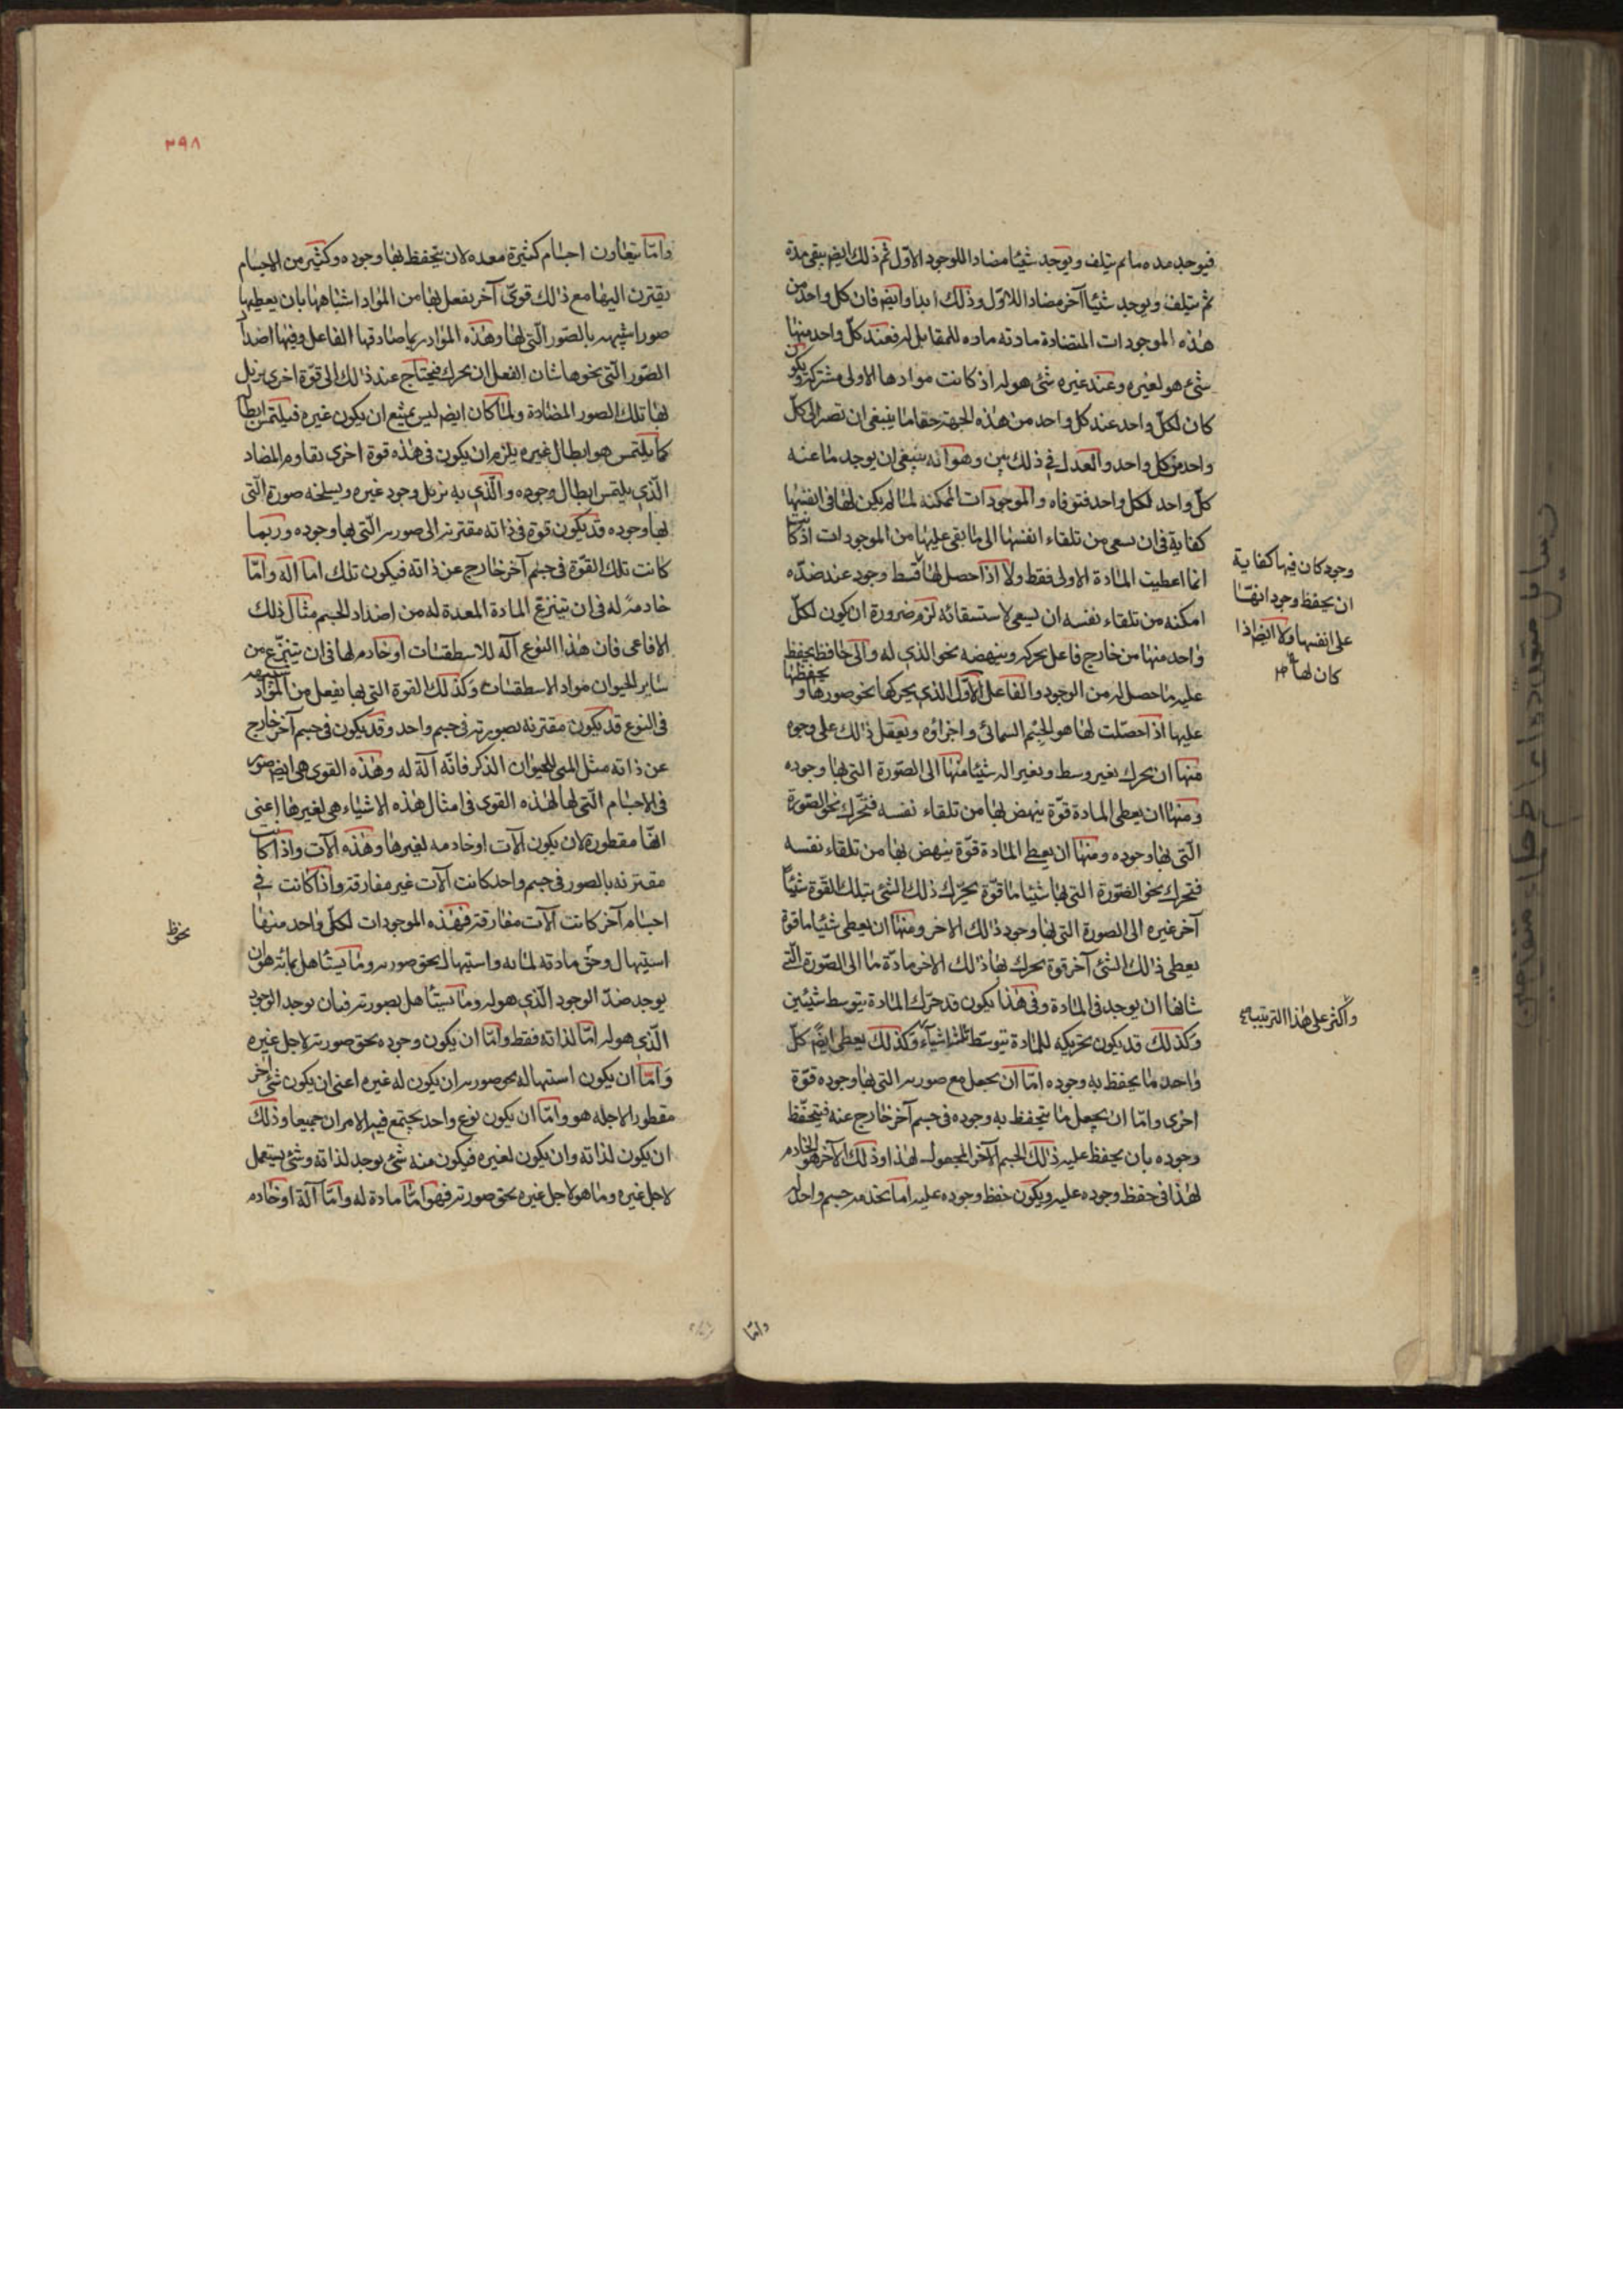 فيوجد مده ما ثم يتلف ويوجد شيئا مضادا للوجود الاوّل ثم ذلك ايضا يبقى مدة
ثم يتلف ويوجد شيئا آخر مضادا للاوّل وذلك ابدا وايضا فان كل واحد من
هذه الموجودات المتضادة مادته ماده للمقابل له فعند كلّ واحد منها
شئ هو لغيره وعند غيره شئ هو له اذ كانت موادها الاولى مشتركة ويكون
كان لكلّ واحد عند كل واحد من هذه الجهة حقا ما ينبغى ان تصير الى كلّ
واحد من كل واحد والعدل في ذلك بين وهو انه ينبغى ان يوجد ما عند
كلّ واحد لكل واحد فتوفاه والموجودات الممكنه لما لم يكن لها فى انفسها
كفاية فى ان يسعى من تلقاء انفسها الى ما بقى عليها من الموجودات اذ كانت
انما اعطيت المادة الاولى فقط ولا اذا حصل لها قسط وجود عند ضدّه
امكنه من تلقاء نفسه ان يسعى لاستسقائه لزم ضرورة ان يكون لكلّ
واحد منها من خارج فاعل يحركه وينهضه نحو الذي له والى حافظ يحفظ
عليه ما حصل له من الوجود والفاعل الاوّل الذي يحركها نحو صورها و يحفظها
عليها اذا حصلت لها هو الجسم السمائى واجزاؤه ويعقل ذلك على وجوه
منها ان يحرك بغير وسط وبغير اله شيئا منها الى الصّورة التى بها وجوده
ومنها ان يعطى المادة قوّة ينهض بها من تلقاء نفسه فتحرك نحو الصّورة
الّتى بها وجوده ومنها ان يعطى المادة قوّة ينهض بها من تلقاء نفسه
فتحرك نحو الصّورة التى بها شيئا ما قوّة يحرّك ذلك الشئ بتلك القوة شيئا
آخر غيره الى الصورة التى بها وجود ذلك الاخر ومنها ان يعطى شيئا ما قوة
يعطى ذلك الشئ آخر قوة يحرك بها ذلك الاخر مادّة ما الى الصّورة الّتى
شانها ان يوجد فى المادة وفى هذا يكون قد حرّك المادة بتوسط شيئين
وكذلك قد يكون تحريكه للمادة بتوسّط ثلثة اشياء وكذلك يعطى ايضا كلّ
واحد ما يحفظ به وجوده امّا ان يجعل مع صورته التى بها وجوده قوّة
اخرى وامّا ان يجعل ما يتحفظ به وجوده فى جسم آخر خارج عنه فيتحفّظ
وجوده بان يحفظ عليه ذلك الجسم الآخر المجعول لهذا وذلك الآخر هو الخادم
لهذا فى حفظ وجوده عليه ويكون حفظ وجوده عليه اما بخدمة جسم واحد له
وجود كان فيها كفاية
ان يحفظ وجوداتها
على انفسها ولا ايضا اذا
كان لها
واكثر على هذا الترتيب
وامّا
٣٩٨
وامّا يتعاون اجسام كثيرة معده لان يتحفظ بها وجوده وكثير من الاجسام
يقترن اليها مع ذلك قوىّ آخر يفعل بها من المواد اشباهها بان يعطيها
صورا شبيهه بالصّور الّتى لها وهذه المواد ربما صادفها الفاعل وفيها اضداد
الصّور الّتى نحوها شان الفعل ان يحرك فيحتاج عند ذلك الى قوّة اخرى يزيل
بها تلك الصور المضادة ولما كان ايضا ليس يمتنع ان يكون غيره فيلتمس ابطاله
كما يلتمس هو ابطال غيره يلزم ان يكون فى هذه قوة اخرى تقاوم المضاد
الّذي يلتمس ابطال وجوده والّذي به يزيل وجود غيره ويسلخه صورة الّتى
بها وجوده قد يكون قوة فى ذاته مقترنة الى صورته الّتى بها وجوده وربما
كانت تلك القوّة فى جسم آخر خارج عن ذاته فيكون تلك اما اله وامّا
خادمة له فى ان ينتزع المادة المعدة له من اضداد الجسم مثال ذلك
الافاعى فان هذا النوع آله للاسطقسات او خادم لها فى ان ينتزع من
ساير الحيوان مواد الاسطقسات وكذلك القوة التى بها يفعل من المواد شبيهه
فى النوع قد يكون مقترنه بصورته فى جسم واحد وقد يكون فى جسم آخر خارج
عن ذاته مثل المنى للحيوان الذكر فانّه آلة له وهذه القوى هى ايضا صور
فى الاجسام الّتى لها لهذه القوى فى امثال هذه الاشياء هى لغيرها اعنى
انّها مفطورة لان يكون آلات او خادمه لغيرها وهذه آلات واذا كانت
مقترنه بالصور فى جسم واحد كانت آلات غير مفارقة واذا كانت في
اجسام آخر كانت آلات مفارقة فهذه الموجودات لكلّ واحد منها
استيهال وحق مادته لما به واستيهال بحق صورته وما يستاهل بمادته هو ان
يوجد ضدّ الوجود الّذي هو له وما يستاهل بصورته فبان يوجد الوجود
الّذي هو له امّا لذاته فقط وامّا ان يكون وجوده بحق صورته لاجل غيره
وامّا ان يكون استيهاله بحق صورته ان يكون له غيره اعنى ان يكون شئ آخر
مفطورا لاجله هو وامّا ان يكون نوع واحد يجتمع فيه الامران جميعا وذلك
ان يكون لذاته وان يكون لغيره فيكون منه شئ يوجد لذاته وشئ يستعمل
لاجل غيره وما هو لاجل غيره بحق صورته فهو امّا مادة له وامّا آلة او خادم
بحق